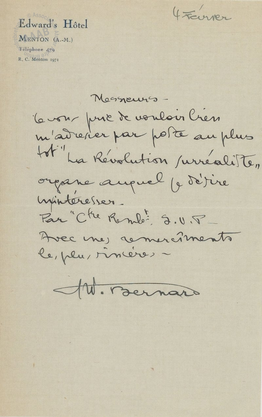 Edward's Hôtel
MENTON (A.-M.)
Téléphone 474
R. C. Menton
4 Février
Messieurs -
Je vous prie de vouloir bien
m'adresser par poste au plus
tôt "La Révolution surréaliste"
organe auquel je désire
m'intéresser.
Par Ctre Rembt. S.V.P -
Avec mes remerciements
les plus sincères -
Bernard